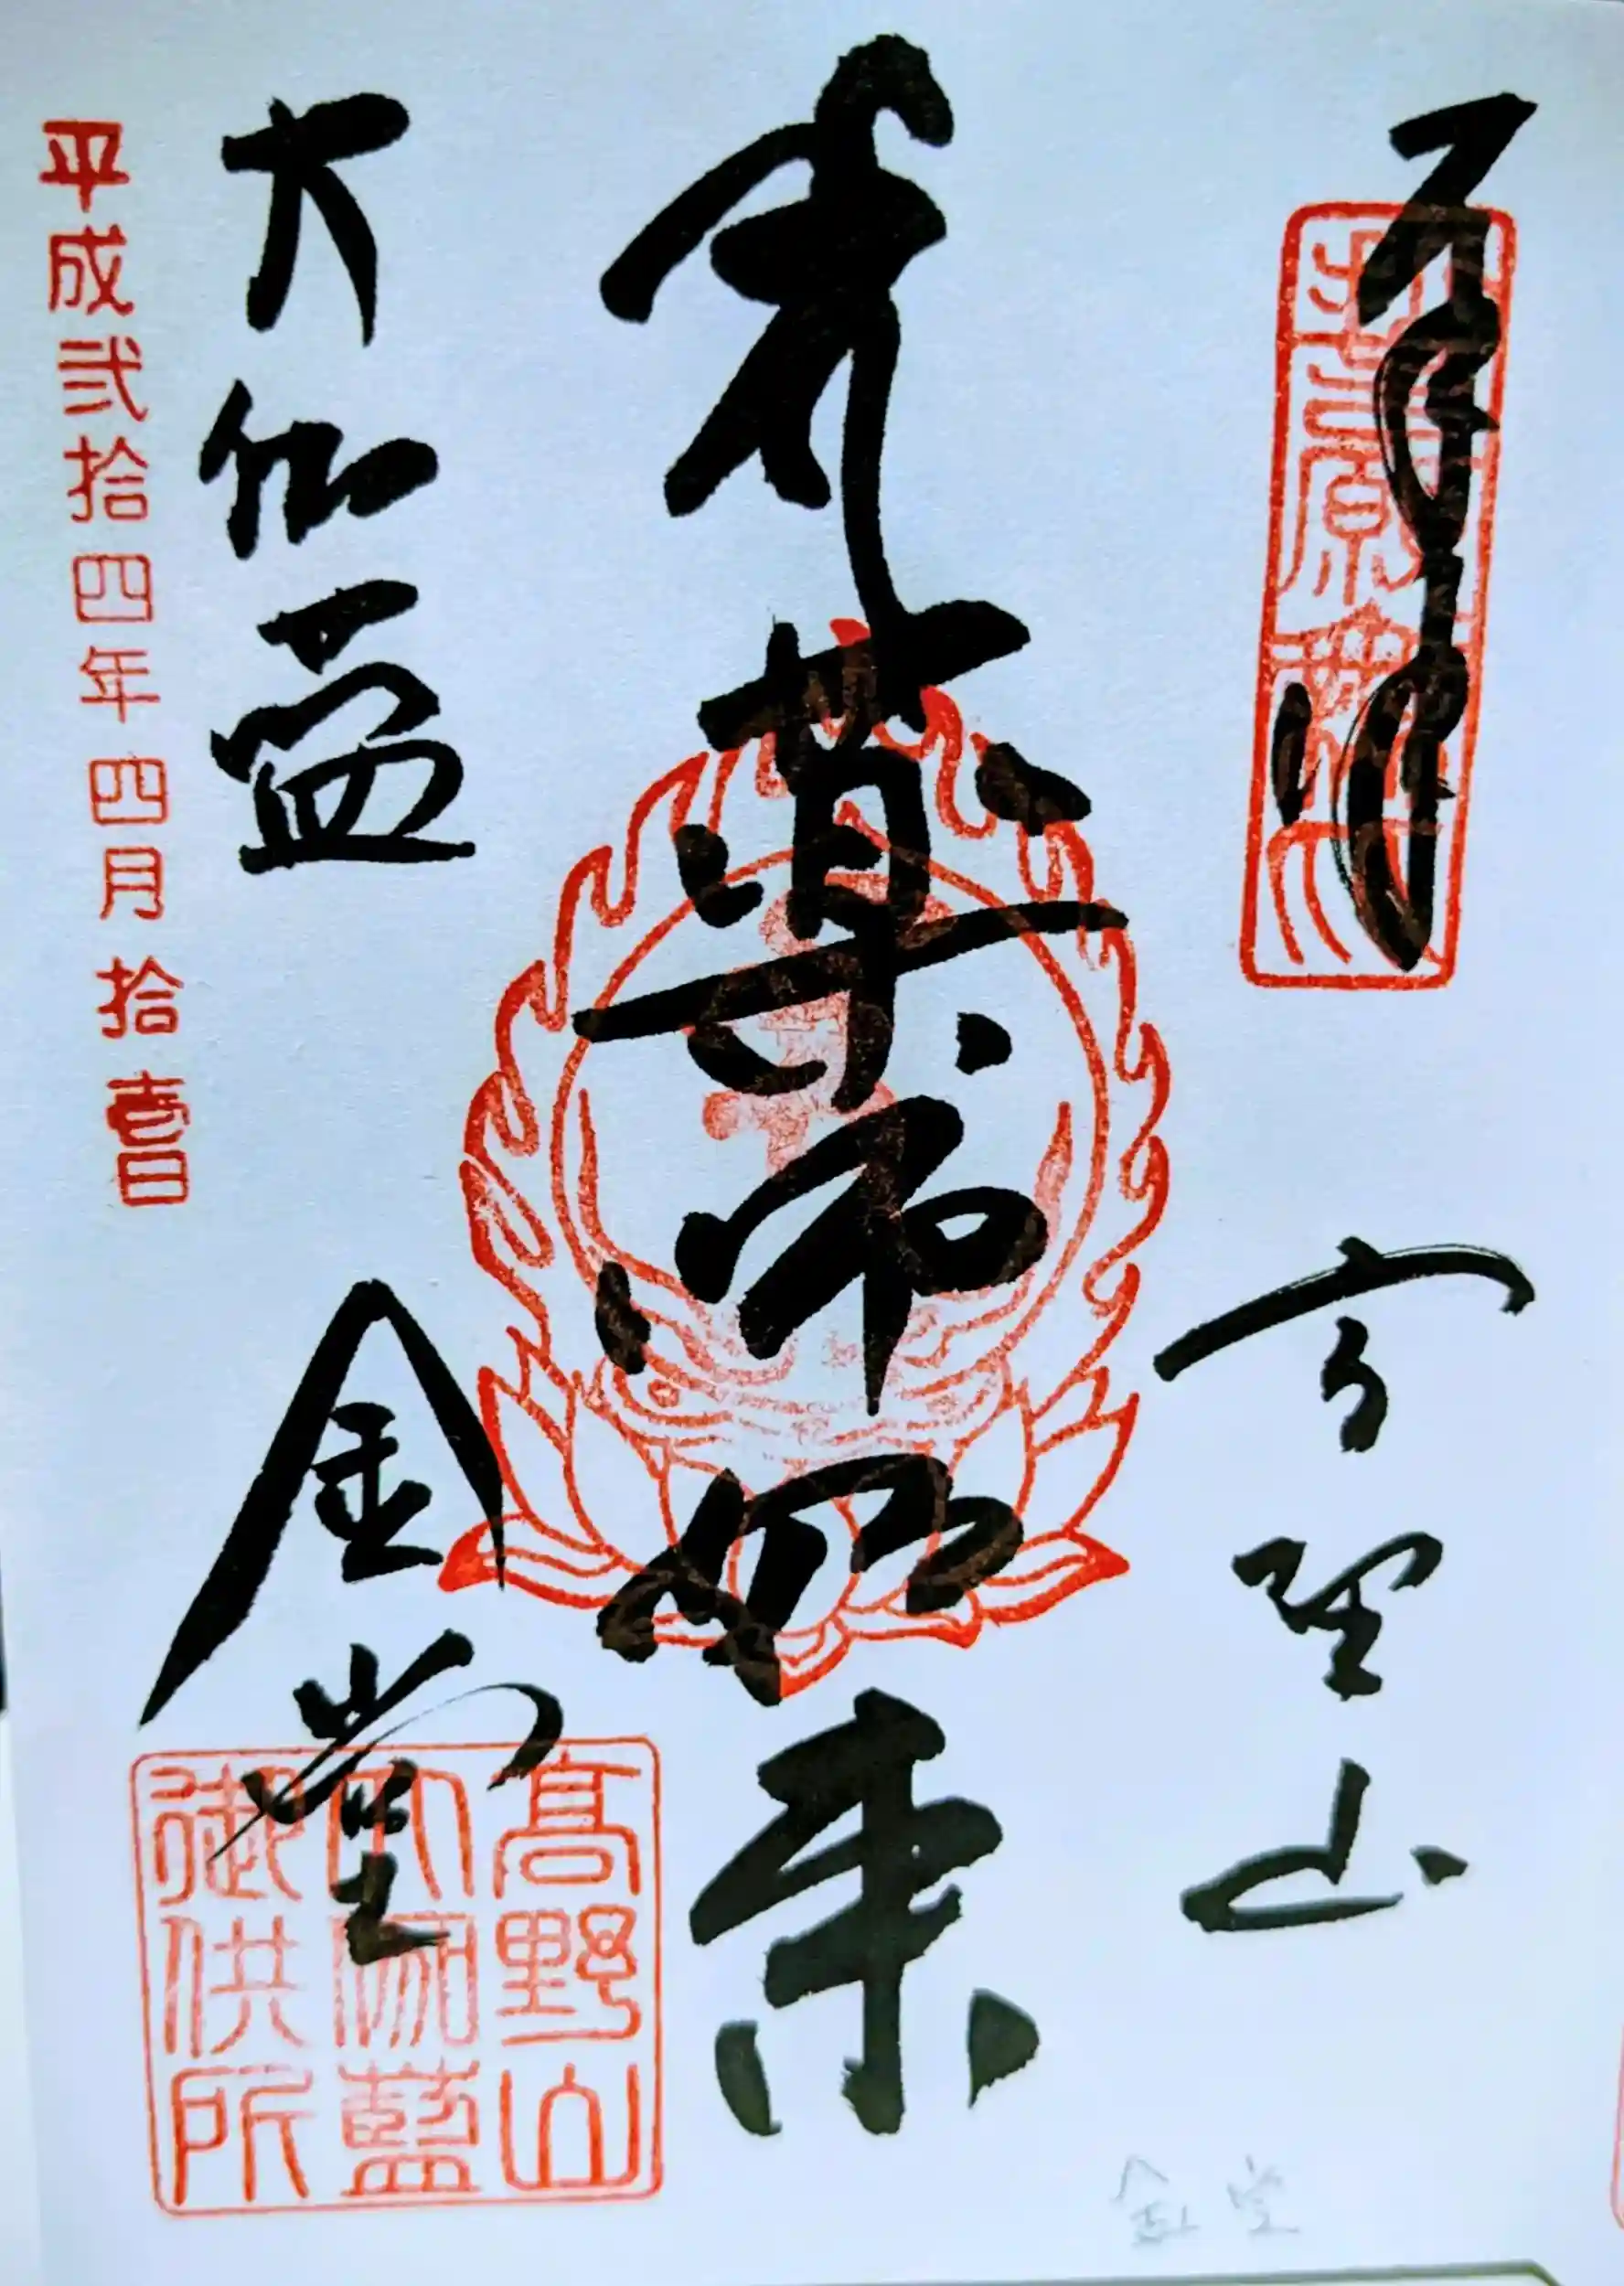 奉拝
高野山
本尊薬師如来
大伽藍
金堂
平成弐拾四年四月拾壹日
高野山
大伽藍
御供所
金堂